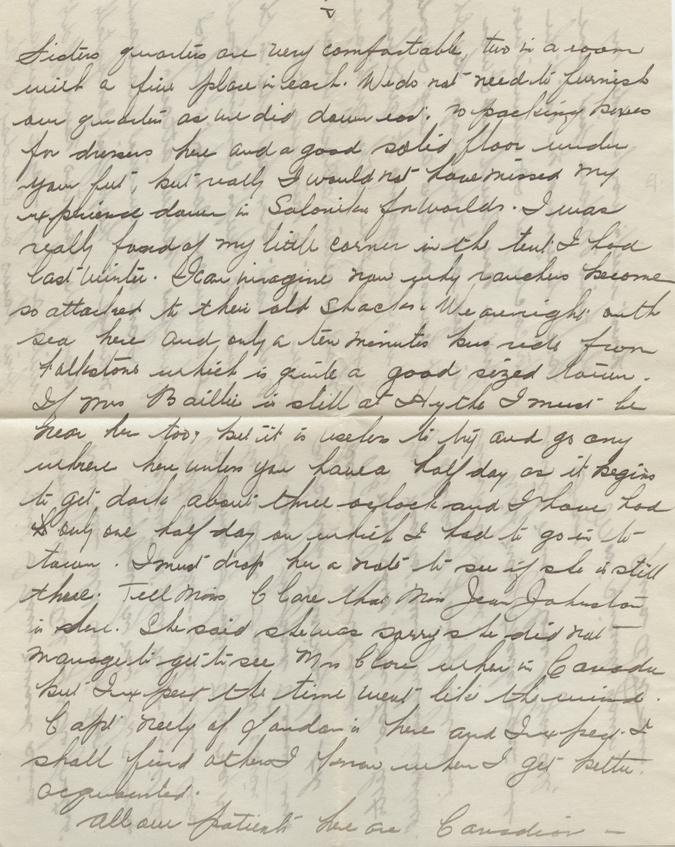 Sisters quarters are very comfortable, two in a room
with a fire place in each. We do not need to furnish
our quarters as we did down east. no packing boxes
for dressers here and a good solid floor under
your feet, but really I would not have missed my
experience down in Salonika for worlds. I was
really fond of my little corner in the tent I had
last winter. I can imagine now why ranchers become
so attached to their old shacks. We are right on the
sea here and only a ten minutes bus ride from
Folkstone which is quite a good sized town.
If Mrs Baillie is still at Hythe I must be
near her too, but it is useless to try and go any
where here unless you have a half day as it begins
to get dark about three oclock and I have had
only one half day on which I had to go in to
town. I must drop her a note to see if she is still
there. Tell Mrs Clare that Miss Jean Johnston
is here. She said she was sorry she did not
manage to get to see Mrs Clare when in Canada
but I expect the time went like the wind.
Capt. of London is here and I expect I
shall find others I know when I get better
acquainted.
All our patients here are Canadian —